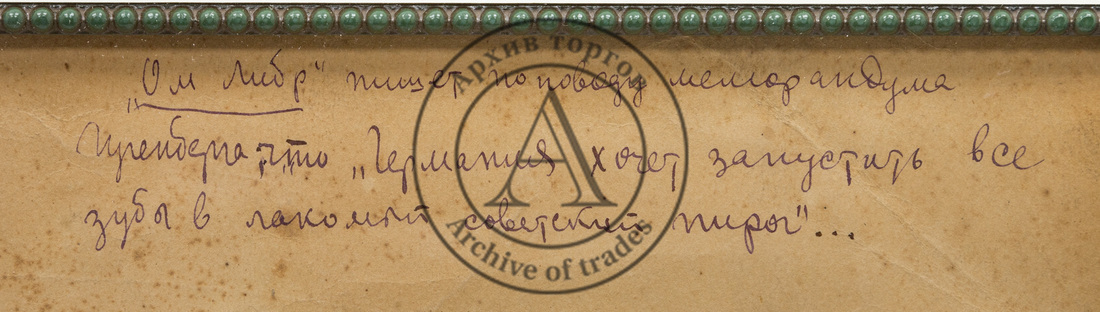 „Ом Либр" пишет по поводу меморандума
Гугенберга, что „Германия хочет запустить все
зубы в лакомый советский пирог"...
Архив торгов
A
Archive of trades